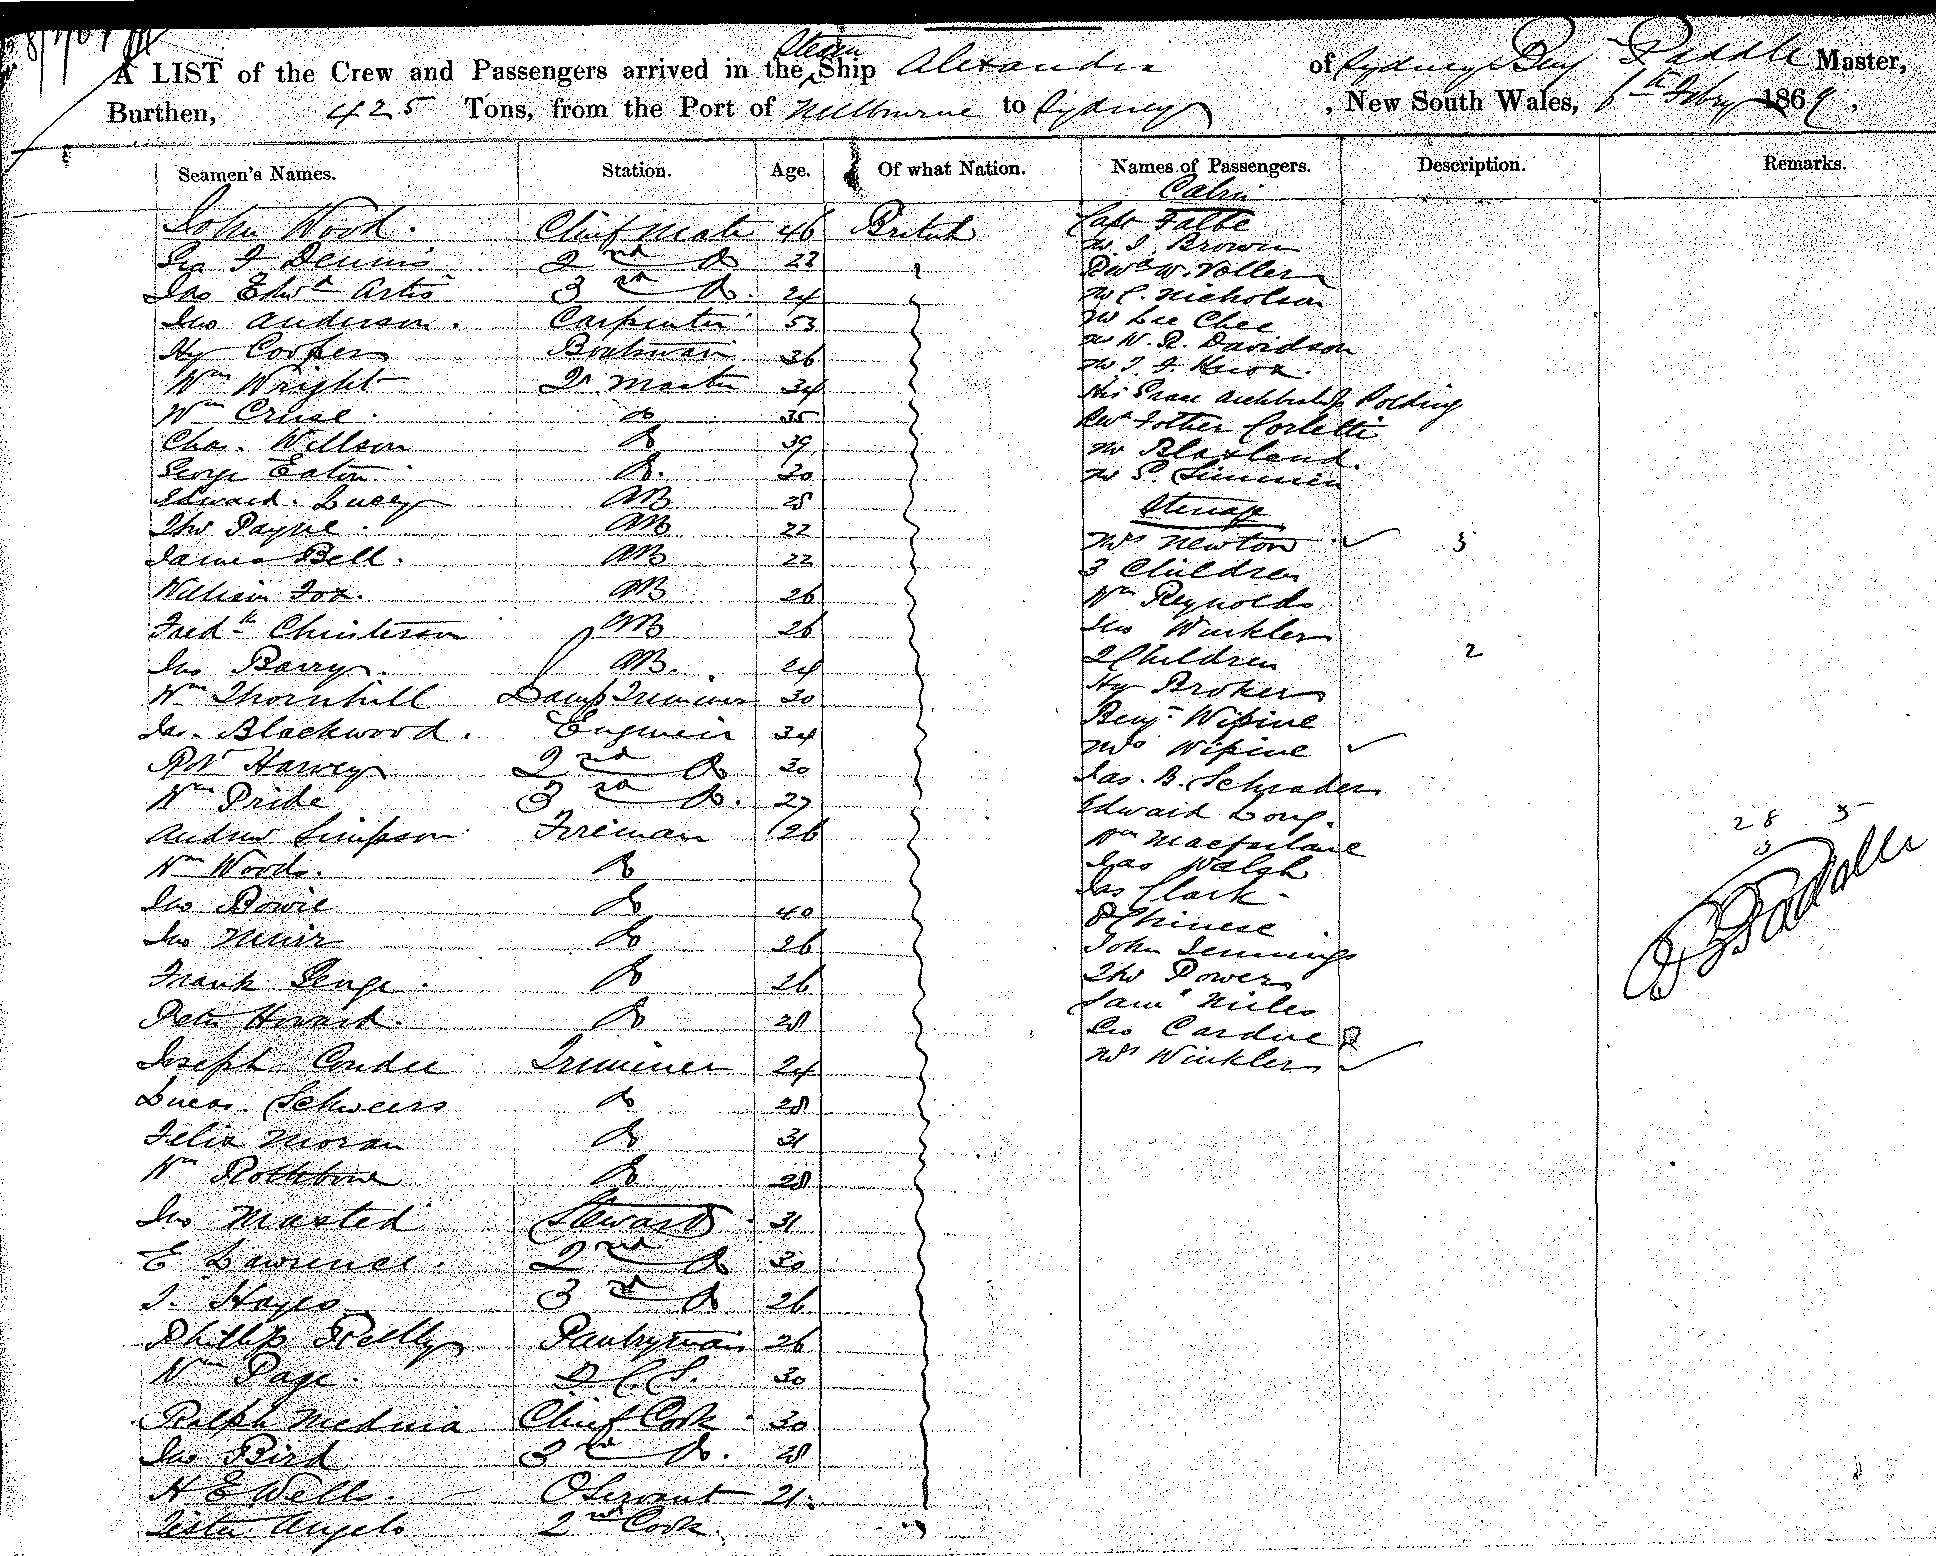 Steam
A LIST of the Crew and Passengers arrived in the Ship Alexandra of Sydney Benj Paddle Master,
Burthen, 425 Tons, from the Port of Melbourne to Sydney, New South Wales, 6th Feby 1869.
Seamen's Names. Station. Age. Of what Nation. Names of Passengers. Description. Remarks.
John Wood. Chief Mate 46 British
F Dennis 2nd Do
Jas Edwd Artis 3rd Do. 24
Jno Anderson. Carpenter 53
Hy Cooper Boatswain 36
Wm Wright Qr Master 34
Wm Cruse. Do 35
Chas. Willson Do 39
George Eaton Do. 30
Edward Lucey AB 25
Thos Payne. AB 22
James Bell. AB 22
William Fox. AB 26
Fredk Christerson AB 26
Jno Barry. AB. 24
Wm Thornhill Lamp Trimmer 30
Jas. Blackwood. Engineer 34
Robt Harvey 2nd Do 30
Wm Pride 3rd Do. 27
Andrew Simpson Fireman 26
Wm Woods. Do
Jno Bowie Do 40
Jno Muir Do 26
Frank Do 26
Peter Howard. Do 28
Joseph Condee Trimmer 24
Lucas. Schweers Do 28
Felix Moran Do 31
Wm Rothbone Do 28
Jno Maxted Steward 31
E Lawrence. 2nd Do 30
J. Hayes 3rd Do 26
Phillip Reilly Pantryman 26
Wm Page. 30
Ralph Medina Chief Cook 30
Jno Bird 3rd Do. 28
H E Wells. Servant 21
Angelo 2nd Cook.
Cabin
Capt Falbe
Mr J. Brown
W. Voller
Mr C. Nicholson
Mr Lee Chee
Mr W. R. Davidson
Mr J. F. Knox.
His Grace Archbishop Polding
Revd Father Corletti
Mr Blaxland.
Mr P. Simmen
Steerage
Mrs Newton 3
3 Children
Wm Reynolds
Jno Winkler
2 Children 2
Hy Broker
Benj Wipine
Mrs Wipine
Jas. B. Schrader
Edward Long.
Wm Macfarlane
Jas Walsh
Jas Clark
8 Chinese
John Jennings
Thos Power
Saml Niles
Geo Cardue
Mrs Winkler
28 5
B Paddle